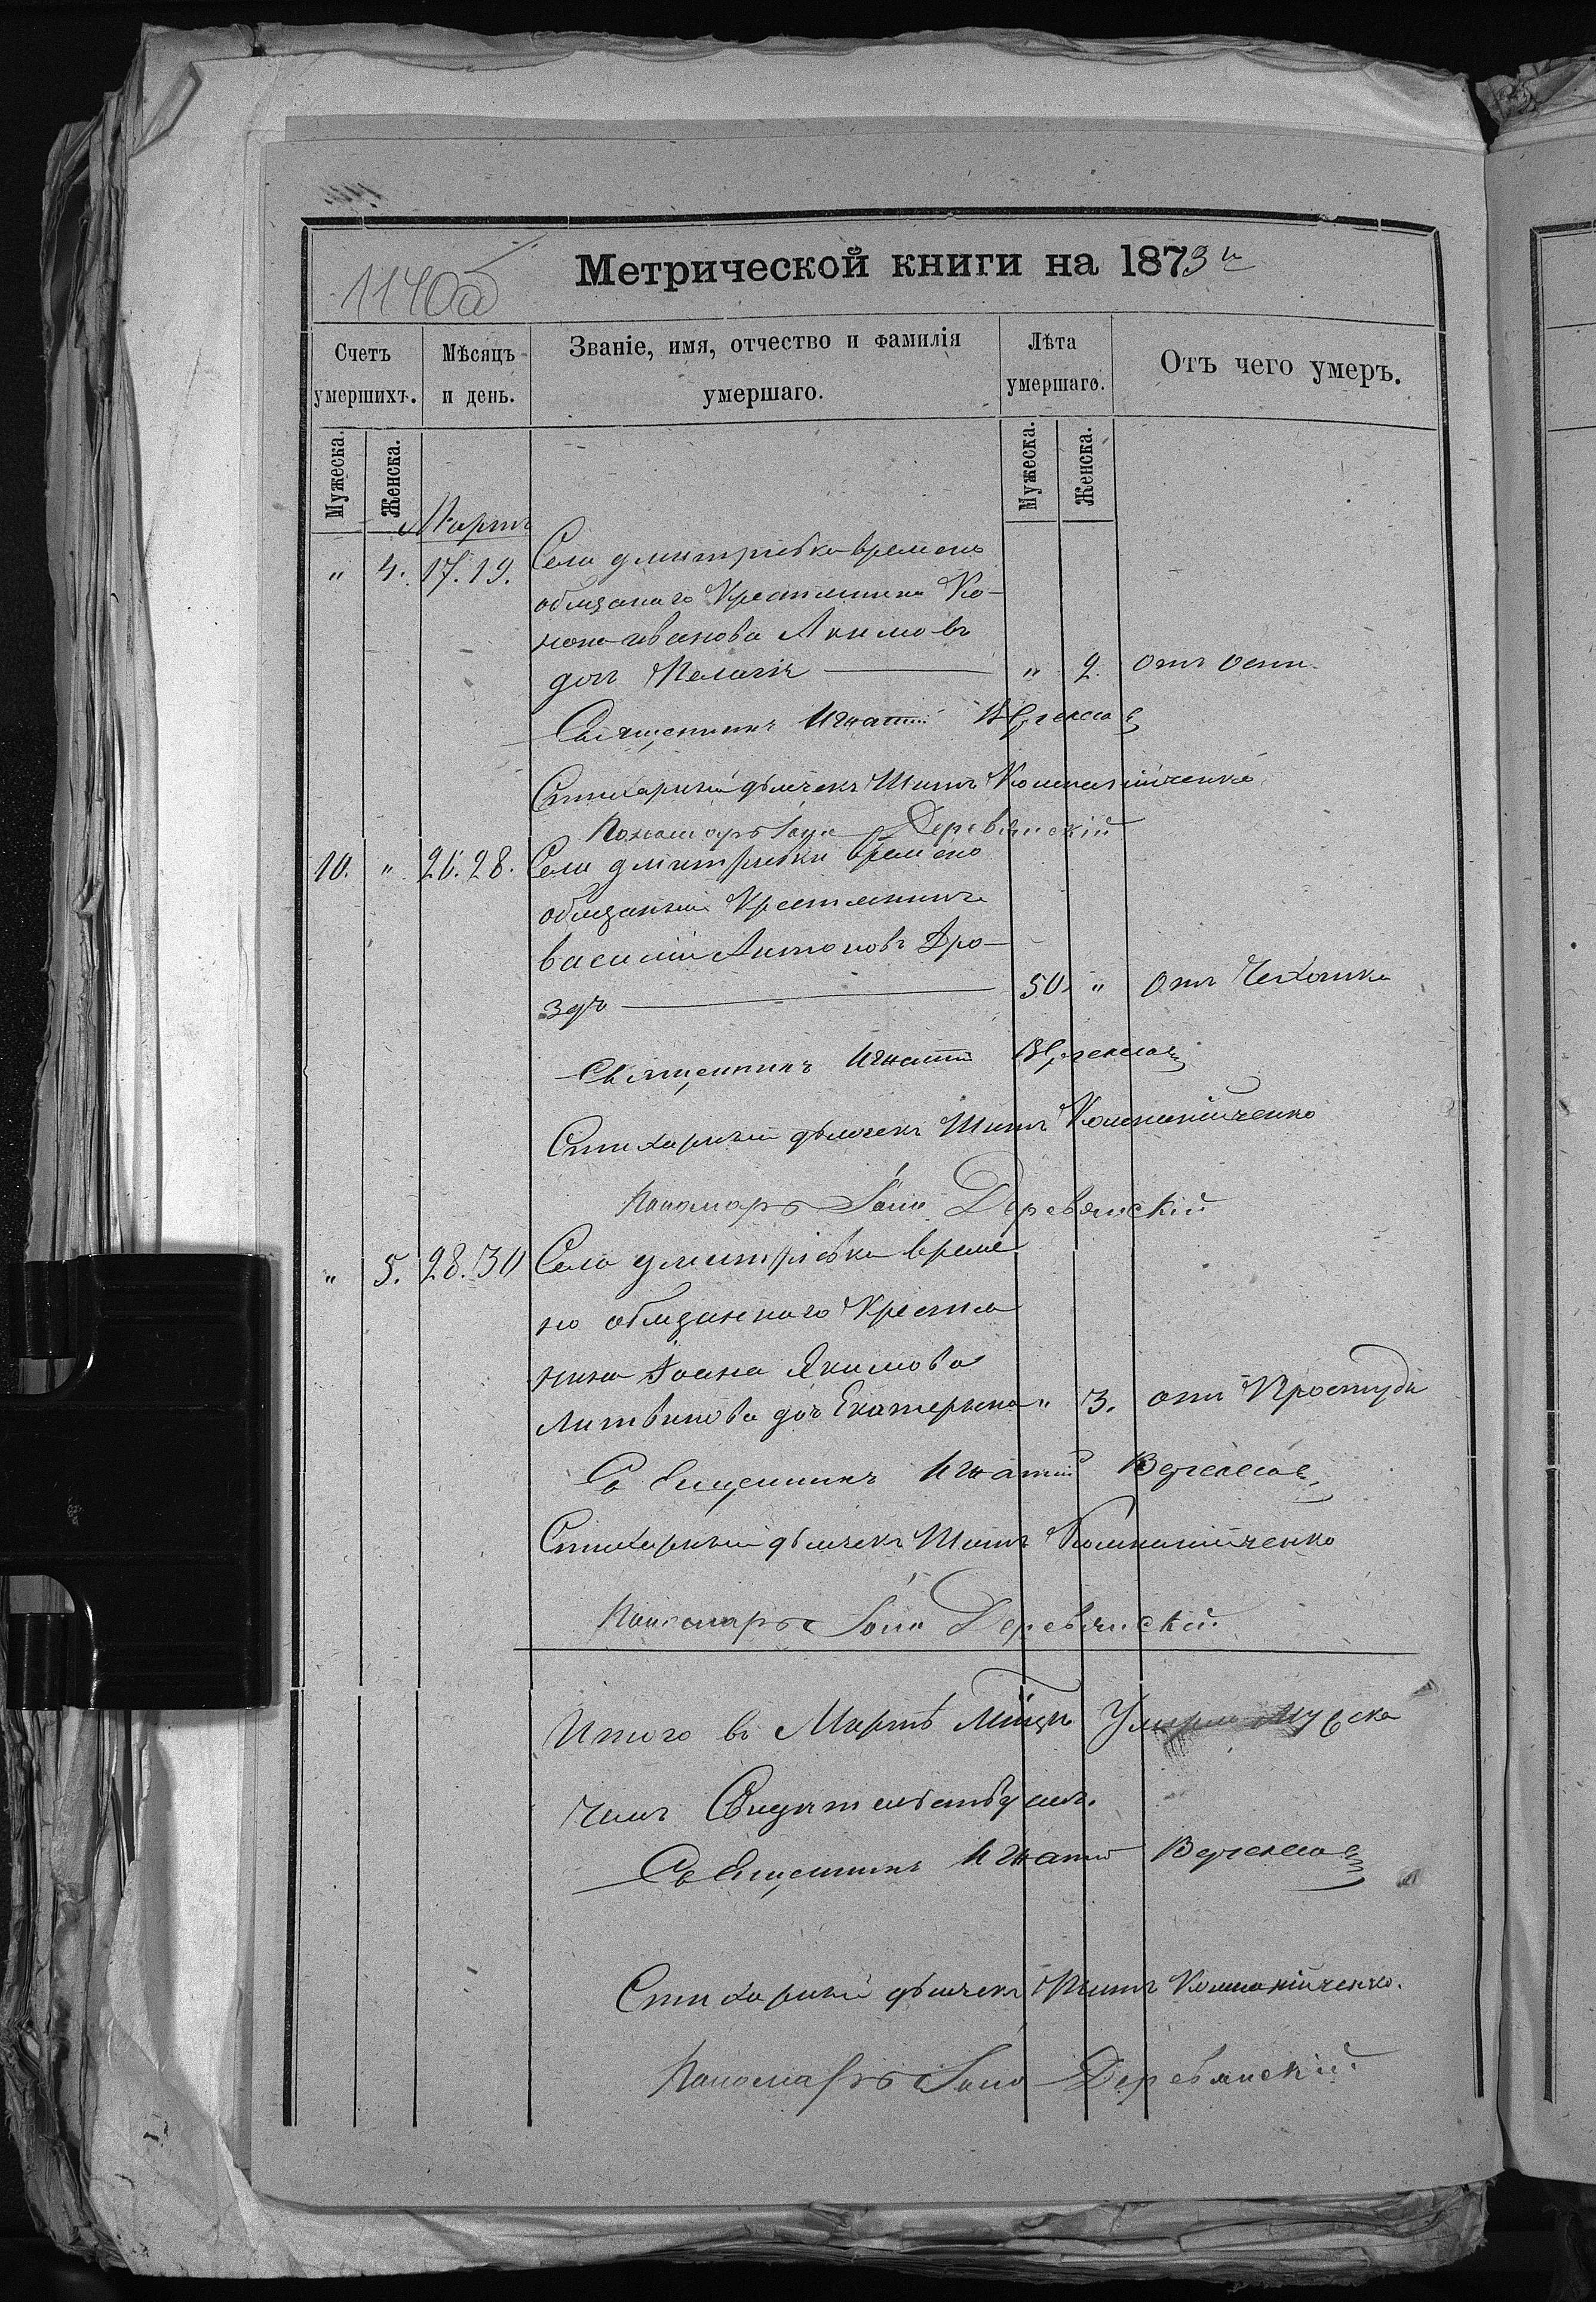 Метрической книги на 1873 г̃
1140об
Счетъ умершихъ.
Мѣсяцъ и день.
Званіе, имя, отчество и фамилія умершаго.
Лѣта умершаго.
Отъ чего умеръ.
Мужеска. Женска. Мужеска. Женска.
Мартъ
" 4. 17. 19. Села дмитрiевка времено
обязанаго Крестянина Ко-
нона иванова Акимовъ
доч Пелагiя " 2. отъ оспи
Священникъ Игнатiй
Стихарный дьячекъ Титъ Компанiйченко
Пономарь Іона Деревянскiй
10. " 26. 28. Села дмитрiевки времено
обязаный Крестянинъ
василiй Антоновъ Дро-
здъ 50. " Отъ Чехотки
Священникъ Игнатiй
Стихарный дьячекъ Титъ Компанiйченко
Пономарь Іона Деревянскiй
" 5. 28. 30 Села дмитрiевка време
но обязаннаго Крестья
нина Іоана Якимова
Литвинова доч Екатерина " 3. отъ Простуди
Священникъ Игнатiй
Стихарный дьячекъ Титъ Компанiйченко
Пономарь Іона Деревянскiй
Итого въ Мартѣ Мѣсяцѣ Умерло Мужеска
чемъ Свидѣтельствуемъ.
Священникъ Игнатiй
Стихарный дьячекъ Титъ Компанiйченко.
Пономарь Іона Деревянскiй